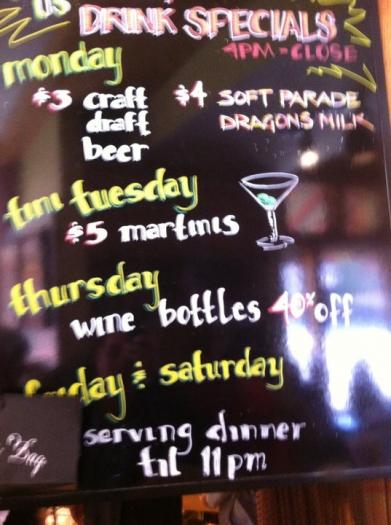 DRINK SPECIALS
4PM - CLOSE
monday
$3 craft $4 SOFT PARADE
draft DRAGONS MILK
beer
tini tuesday
$5 martinis
thursday
wine bottles 40% off
friday & saturday
serving dinner
til 11pm